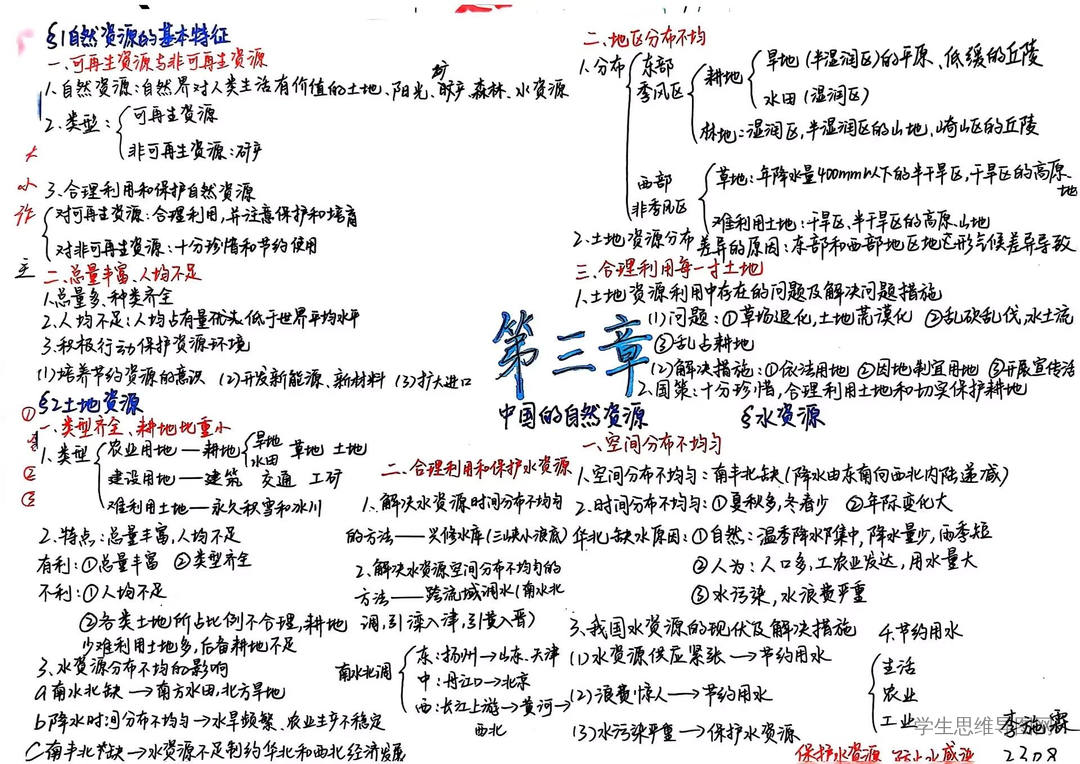 §1自然资源的基本特征
一、可再生资源与非可再生资源
1.自然资源:自然界对人类生活有价值的土地、阳光、矿产、森林、水资源
2.类型:
可再生资源
非可再生资源:矿产
3.合理利用和保护自然资源
对可再生资源:合理利用,并注意保护和培育
对非可再生资源:十分珍惜和节约使用
二、总量丰富、人均不足
1.总量多、种类齐全
2.人均不足:人均占有量 低于世界平均水平
3.积极行动保护资源环境
(1)培养节约资源的意识 (2)开发新能源、新材料 (3)扩大进口
§2土地资源
一、类型齐全、耕地比重小
1.类型
农业用地—耕地
旱地
水田
草地 土地
建设用地—建筑 交通 工矿
难利用土地—永久积雪和冰川
2.特点:总量丰富,人均不足
有利:①总量丰富 ②类型齐全
不利:①人均不足
②各类土地所占比例不合理,耕地
少难利用土地多,后备耕地不足
3.水资源分布不均的影响
a南水北缺→南方水田,北方旱地
b降水时间分布不均匀→水旱频繁、农业生产不稳定
C南丰北缺→水资源不足制约华北和西北经济发展
第三章
中国的自然资源
二、地区分布不均
1.分布
东部
季风区
耕地
旱地(半湿润区)的平原、低缓的丘陵
水田(湿润区)
林地:湿润区,半湿润区的山地,崎山区的丘陵
西部
非季风区
草地:年降水量400mm以下的半干旱区,干旱区的高原、
地
难利用土地:干旱区、半干旱区的高原、山地
2.土地资源分布差异的原因:东部和西部地区地区形气候差异导致
三、合理利用每一寸土地
1.土地资源利用中存在的问题及解决问题措施
(1)问题:①草场退化,土地荒漠化 ②乱砍乱伐,水土流
③乱占耕地
(2)解决措施:①依法用地 ②因地制宜用地 ③开展宣传活
2.国策:十分珍惜,合理利用土地和切实保护耕地
§水资源
一、空间分布不均匀
1.空间分布不均匀:南丰北缺(降水由东南向西北内陆递减)
2.时间分布不均匀:①夏秋多,冬春少 ②年际变化大
华北缺水原因:①自然:温季降水集中,降水量少,雨季短
②人为:人口多,工农业发达,用水量大
③水污染,水浪费严重
二、合理利用和保护水资源
1.解决水资源时间分布不均匀
的方法——兴修水库(三峡小浪底)
2.解决水资源空间分布不均匀的
方法——跨流域调水(南水北
调,引滦入津,引黄入晋)
南水北调
东:扬州→山东、天津
中:丹江口→北京
西:长江上游→黄河→
西北
3.我国水资源的现状及解决措施
(1)水资源供应紧张→节约用水
(2)浪费惊人→节约用水
(3)水污染严重→保护水资源
4.节约用水
生活
农业
工业
李施霖
2308
保护水资源
学生思维导图网